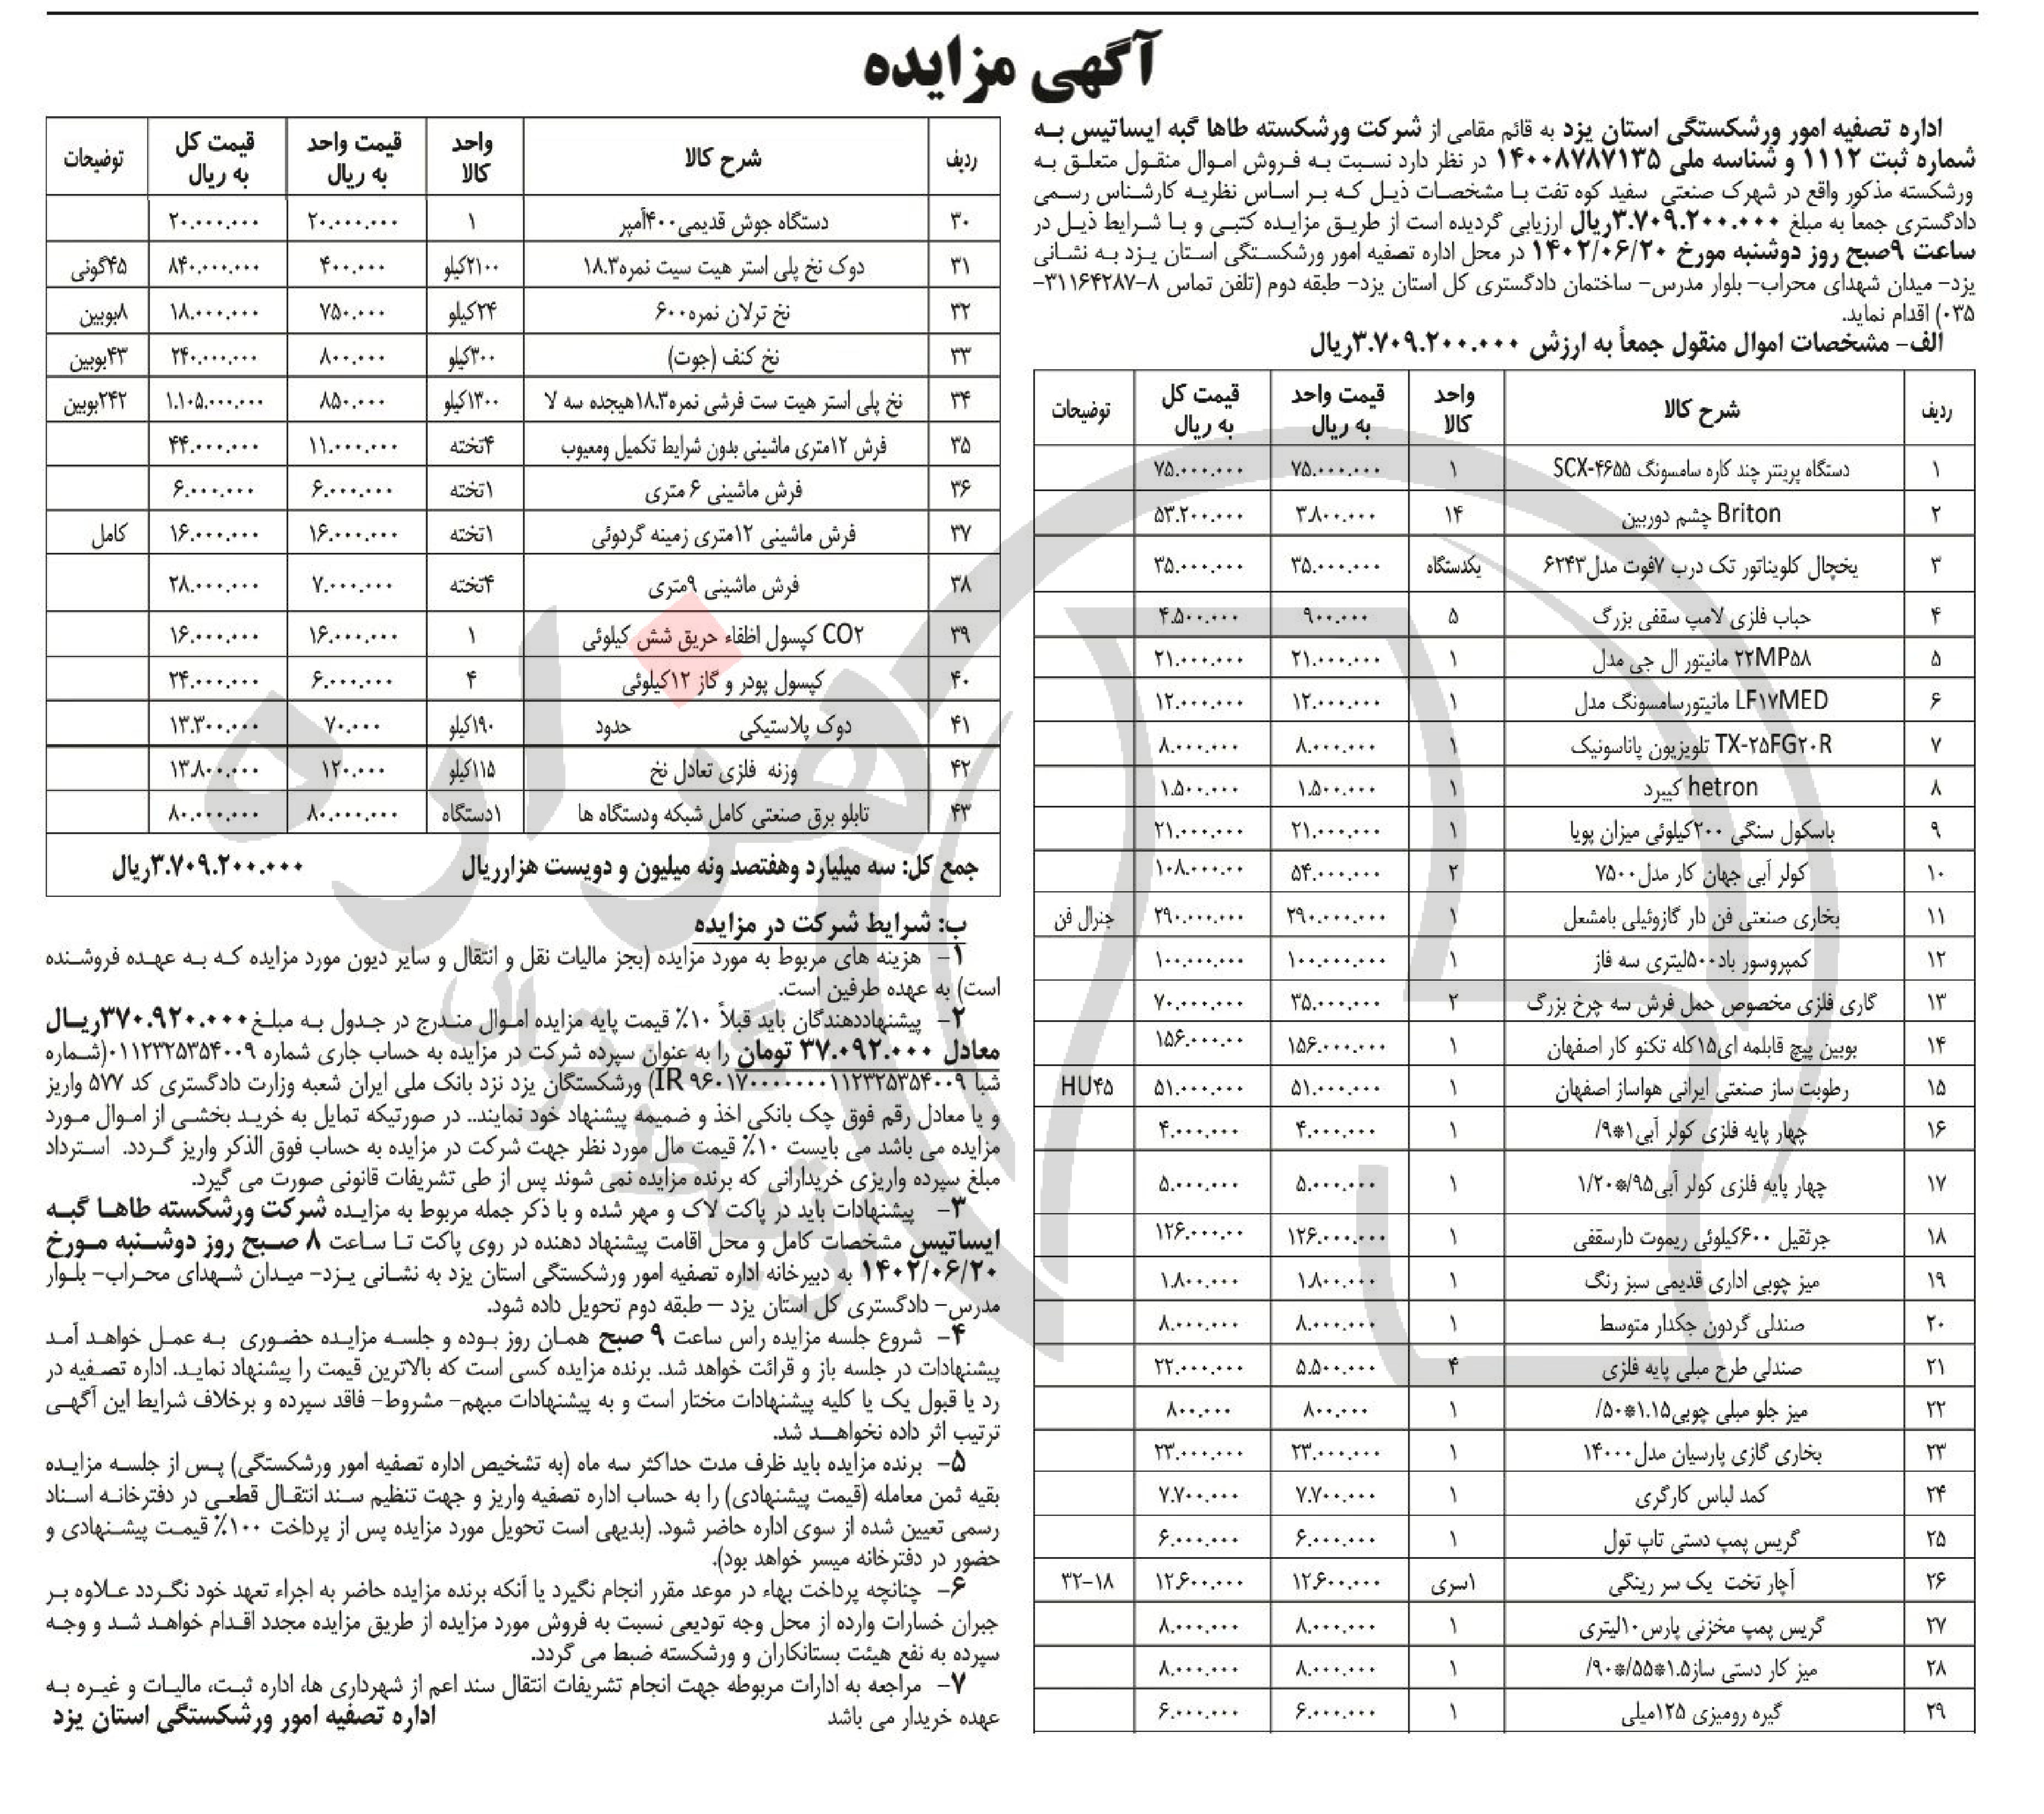 آگهی مزایده
اداره تصفیه امور ورشکستگی استان یزد به قائم مقامی از شرکت ورشکسته طاها گبه ایساتیس به
شماره ثبت ۱۱۱۲ و شناسه ملی ۱۴۰۰۸۷۸۷۱۳۵ در نظر دارد نسبت به فروش اموال منقول متعلق به
ورشکسته مذکور واقع در شهرک صنعتی سفید کوه تفت با مشخصات ذیل که بر اساس نظریه کارشناس رسمی
دادگستری جمعاً به مبلغ ۳.۷۰۹.۲۰۰.۰۰۰ریال ارزیابی گردیده است از طریق مزایده کتبی و با شرایط ذیل در
ساعت ۹صبح روز دوشنبه مورخ ۱۴۰۲/۰۶/۲۰ در محل اداره تصفیه امور ورشکستگی استان یزد به نشانی
یزد- میدان شهدای محراب- بلوار مدرس- ساختمان دادگستری کل استان یزد- طبقه دوم (تلفن تماس ۸-۳۱۱۶۴۲۸۷-
۰۳۵) اقدام نماید.
الف- مشخصات اموال منقول جمعاً به ارزش ۳.۷۰۹.۲۰۰.۰۰۰ریال
ردیف شرح کالا واحد کالا قیمت واحد به ریال قیمت کل به ریال توضیحات
۱ دستگاه پرینتر چند کاره سامسونگ SCX-۴۶۵۵ ۱ ۷۵.۰۰۰.۰۰۰ ۷۵.۰۰۰.۰۰۰
۲ Briton چشم دوربین ۱۴ ۳.۸۰۰.۰۰۰ ۵۳.۲۰۰.۰۰۰
۳ یخچال کلویناتور تک درب ۷فوت مدل۶۲۴۳ یکدستگاه ۳۵.۰۰۰.۰۰۰ ۳۵.۰۰۰.۰۰۰
۴ حباب فلزی لامپ سقفی بزرگ ۵ ۹۰۰.۰۰۰ ۴.۵۰۰.۰۰۰
۵ ۲۲MP۵۸ مانیتور ال جی مدل ۱ ۲۱.۰۰۰.۰۰۰ ۲۱.۰۰۰.۰۰۰
۶ LF۱۷MED مانیتورسامسونگ مدل ۱ ۱۲.۰۰۰.۰۰۰ ۱۲.۰۰۰.۰۰۰
۷ TX-۲۵FG۲۰R تلویزیون پاناسونیک ۱ ۸.۰۰۰.۰۰۰ ۸.۰۰۰.۰۰۰
۸ hetron کیبرد ۱ ۱.۵۰۰.۰۰۰ ۱.۵۰۰.۰۰۰
۹ باسکول سنگی ۲۰۰کیلوئی میزان پویا ۱ ۲۱.۰۰۰.۰۰۰ ۲۱.۰۰۰.۰۰۰
۱۰ کولر آبی جهان کار مدل۷۵۰۰ ۲ ۵۴.۰۰۰.۰۰۰ ۱۰۸.۰۰۰.۰۰
۱۱ بخاری صنعتی فن دار گازوئیلی بامشعل ۱ ۲۹۰.۰۰۰.۰۰۰ ۲۹۰.۰۰۰.۰۰۰ جنرال فن
۱۲ کمپروسور باد۵۰۰لیتری سه فاز ۱ ۱۰۰.۰۰۰.۰۰۰ ۱۰۰.۰۰۰.۰۰۰
۱۳ گاری فلزی مخصوص حمل فرش سه چرخ بزرگ ۲ ۳۵.۰۰۰.۰۰۰ ۷۰.۰۰۰.۰۰۰
۱۴ بوبین پیچ قابلمه ای۱۵کله تکنو کار اصفهان ۱ ۱۵۶.۰۰۰.۰۰۰ ۱۵۶.۰۰۰.۰۰
۱۵ رطوبت ساز صنعتی ایرانی هواساز اصفهان ۱ ۵۱.۰۰۰.۰۰۰ ۵۱.۰۰۰.۰۰۰ HU۴۵
۱۶ چهار پایه فلزی کولر آبی۱*۹/ ۱ ۴.۰۰۰.۰۰۰ ۴.۰۰۰.۰۰۰
۱۷ چهار پایه فلزی کولر آبی۹۵/*۱/۲۰ ۱ ۵.۰۰۰.۰۰۰ ۵.۰۰۰.۰۰۰
۱۸ جرثقیل ۶۰۰کیلوئی ریموت دارسقفی ۱ ۱۲۶.۰۰۰.۰۰۰ ۱۲۶.۰۰۰.۰۰۰
۱۹ میز چوبی اداری قدیمی سبز رنگ ۱ ۱.۸۰۰.۰۰۰ ۱.۸۰۰.۰۰۰
۲۰ صندلی گردون جکدار متوسط ۱ ۸.۰۰۰.۰۰۰ ۸.۰۰۰.۰۰۰
۲۱ صندلی طرح مبلی پایه فلزی ۴ ۵.۵۰۰.۰۰۰ ۲۲.۰۰۰.۰۰۰
۲۲ میز جلو مبلی چوبی۱.۱۵*۵۰/ ۱ ۸۰۰.۰۰۰ ۸۰۰.۰۰۰
۲۳ بخاری گازی پارسیان مدل۱۴۰۰۰ ۱ ۲۳.۰۰۰.۰۰۰ ۲۳.۰۰۰.۰۰۰
۲۴ کمد لباس کارگری ۱ ۷.۷۰۰.۰۰۰ ۷.۷۰۰.۰۰۰
۲۵ گریس پمپ دستی تاپ تول ۱ ۶.۰۰۰.۰۰۰ ۶.۰۰۰.۰۰۰
۲۶ آچار تخت یک سر رینگی ۱سری ۱۲.۶۰۰.۰۰۰ ۱۲.۶۰۰.۰۰۰ ۳۲-۱۸
۲۷ گریس پمپ مخزنی پارس۱۰لیتری ۱ ۸.۰۰۰.۰۰۰ ۸.۰۰۰.۰۰۰
۲۸ میز کار دستی ساز۱.۵*۵۵/*۹۰/ ۱ ۸.۰۰۰.۰۰۰ ۸.۰۰۰.۰۰۰
۲۹ گیره رومیزی ۱۲۵میلی ۱ ۶.۰۰۰.۰۰۰ ۶.۰۰۰.۰۰۰
ردیف شرح کالا واحد کالا قیمت واحد به ریال قیمت کل به ریال توضیحات
۳۰ دستگاه جوش قدیمی۴۰۰آمپر ۱ ۲۰.۰۰۰.۰۰۰ ۲۰.۰۰۰.۰۰۰
۳۱ دوک نخ پلی استر هیت سیت نمره۱۸.۳ ۲۱۰۰کیلو ۴۰۰.۰۰۰ ۸۴۰.۰۰۰.۰۰۰ ۴۵گونی
۳۲ نخ ترلان نمره۶۰۰ ۲۴کیلو ۷۵۰.۰۰۰ ۱۸.۰۰۰.۰۰۰ ۸بوبین
۳۳ نخ کنف (جوت) ۳۰۰کیلو ۸۰۰.۰۰۰ ۲۴۰.۰۰۰.۰۰۰ ۴۳بوبین
۳۴ نخ پلی استر هیت ست فرشی نمره۱۸.۳هیجده سه لا ۱۳۰۰کیلو ۸۵۰.۰۰۰ ۱.۱۰۵.۰۰۰.۰۰۰ ۲۴۲بوبین
۳۵ فرش ۱۲متری ماشینی بدون شرایط تکمیل ومعیوب ۴تخته ۱۱.۰۰۰.۰۰۰ ۴۴.۰۰۰.۰۰۰
۳۶ فرش ماشینی ۶ متری ۱تخته ۶.۰۰۰.۰۰۰ ۶.۰۰۰.۰۰۰
۳۷ فرش ماشینی ۱۲متری زمینه گردوئی ۱تخته ۱۶.۰۰۰.۰۰۰ ۱۶.۰۰۰.۰۰۰ کامل
۳۸ فرش ماشینی ۹متری ۴تخته ۷.۰۰۰.۰۰۰ ۲۸.۰۰۰.۰۰۰
۳۹ CO۲ کپسول اظفاء حریق شش کیلوئی ۱ ۱۶.۰۰۰.۰۰۰ ۱۶.۰۰۰.۰۰۰
۴۰ کپسول پودر و گاز ۱۲کیلوئی ۴ ۶.۰۰۰.۰۰۰ ۲۴.۰۰۰.۰۰۰
۴۱ دوک پلاستیکی حدود ۱۹۰کیلو ۷۰.۰۰۰ ۱۳.۳۰۰.۰۰۰
۴۲ وزنه فلزی تعادل نخ ۱۱۵کیلو ۱۲۰.۰۰۰ ۱۳.۸۰۰.۰۰۰
۴۳ تابلو برق صنعتی کامل شبکه ودستگاه ها ۱دستگاه ۸۰.۰۰۰.۰۰۰ ۸۰.۰۰۰.۰۰۰
جمع کل: سه میلیارد وهفتصد ونه میلیون و دویست هزارریال ۳.۷۰۹.۲۰۰.۰۰۰ریال
ب: شرایط شرکت در مزایده
۱- هزینه های مربوط به مورد مزایده (بجز مالیات نقل و انتقال و سایر دیون مورد مزایده که به عهده فروشنده
است) به عهده طرفین است.
۲- پیشنهاددهندگان باید قبلاً ۱۰٪ قیمت پایه مزایده اموال مندرج در جدول به مبلغ۳۷۰.۹۲۰.۰۰۰ریال
معادل ۳۷.۰۹۲.۰۰۰ تومان را به عنوان سپرده شرکت در مزایده به حساب جاری شماره ۰۱۱۲۳۲۵۳۵۴۰۰۹(شماره
شبا IR ۹۶۰۱۷۰۰۰۰۰۰۰۱۱۲۳۲۵۳۵۴۰۰۹) ورشکستگان یزد نزد بانک ملی ایران شعبه وزارت دادگستری کد ۵۷۷ واریز
و یا معادل رقم فوق چک بانکی اخذ و ضمیمه پیشنهاد خود نمایند.. در صورتیکه تمایل به خرید بخشی از اموال مورد
مزایده می باشد می بایست ۱۰٪ قیمت مال مورد نظر جهت شرکت در مزایده به حساب فوق الذکر واریز گردد. استرداد
مبلغ سپرده واریزی خریدارانی که برنده مزایده نمی شوند پس از طی تشریفات قانونی صورت می گیرد.
۳- پیشنهادات باید در پاکت لاک و مهر شده و با ذکر جمله مربوط به مزایده شرکت ورشکسته طاها گبه
ایساتیس مشخصات کامل و محل اقامت پیشنهاد دهنده در روی پاکت تا ساعت ۸ صبح روز دوشنبه مورخ
۱۴۰۲/۰۶/۲۰ به دبیرخانه اداره تصفیه امور ورشکستگی استان یزد به نشانی یزد- میدان شهدای محراب- بلوار
مدرس- دادگستری کل استان یزد – طبقه دوم تحویل داده شود.
۴- شروع جلسه مزایده راس ساعت ۹ صبح همان روز بوده و جلسه مزایده حضوری به عمل خواهد آمد
پیشنهادات در جلسه باز و قرائت خواهد شد. برنده مزایده کسی است که بالاترین قیمت را پیشنهاد نماید. اداره تصفیه در
رد یا قبول یک یا کلیه پیشنهادات مختار است و به پیشنهادات مبهم- مشروط- فاقد سپرده و برخلاف شرایط این آگهی
ترتیب اثر داده نخواهد شد.
۵- برنده مزایده باید ظرف مدت حداکثر سه ماه (به تشخیص اداره تصفیه امور ورشکستگی) پس از جلسه مزایده
بقیه ثمن معامله (قیمت پیشنهادی) را به حساب اداره تصفیه واریز و جهت تنظیم سند انتقال قطعی در دفترخانه اسناد
رسمی تعیین شده از سوی اداره حاضر شود. (بدیهی است تحویل مورد مزایده پس از پرداخت ۱۰۰٪ قیمت پیشنهادی و
حضور در دفترخانه میسر خواهد بود).
۶- چنانچه پرداخت بهاء در موعد مقرر انجام نگیرد یا آنکه برنده مزایده حاضر به اجراء تعهد خود نگردد علاوه بر
جبران خسارات وارده از محل وجه تودیعی نسبت به فروش مورد مزایده از طریق مزایده مجدد اقدام خواهد شد و وجه
سپرده به نفع هیئت بستانکاران و ورشکسته ضبط می گردد.
۷- مراجعه به ادارات مربوطه جهت انجام تشریفات انتقال سند اعم از شهرداری ها، اداره ثبت، مالیات و غیره به
عهده خریدار می باشد
اداره تصفیه امور ورشکستگی استان یزد